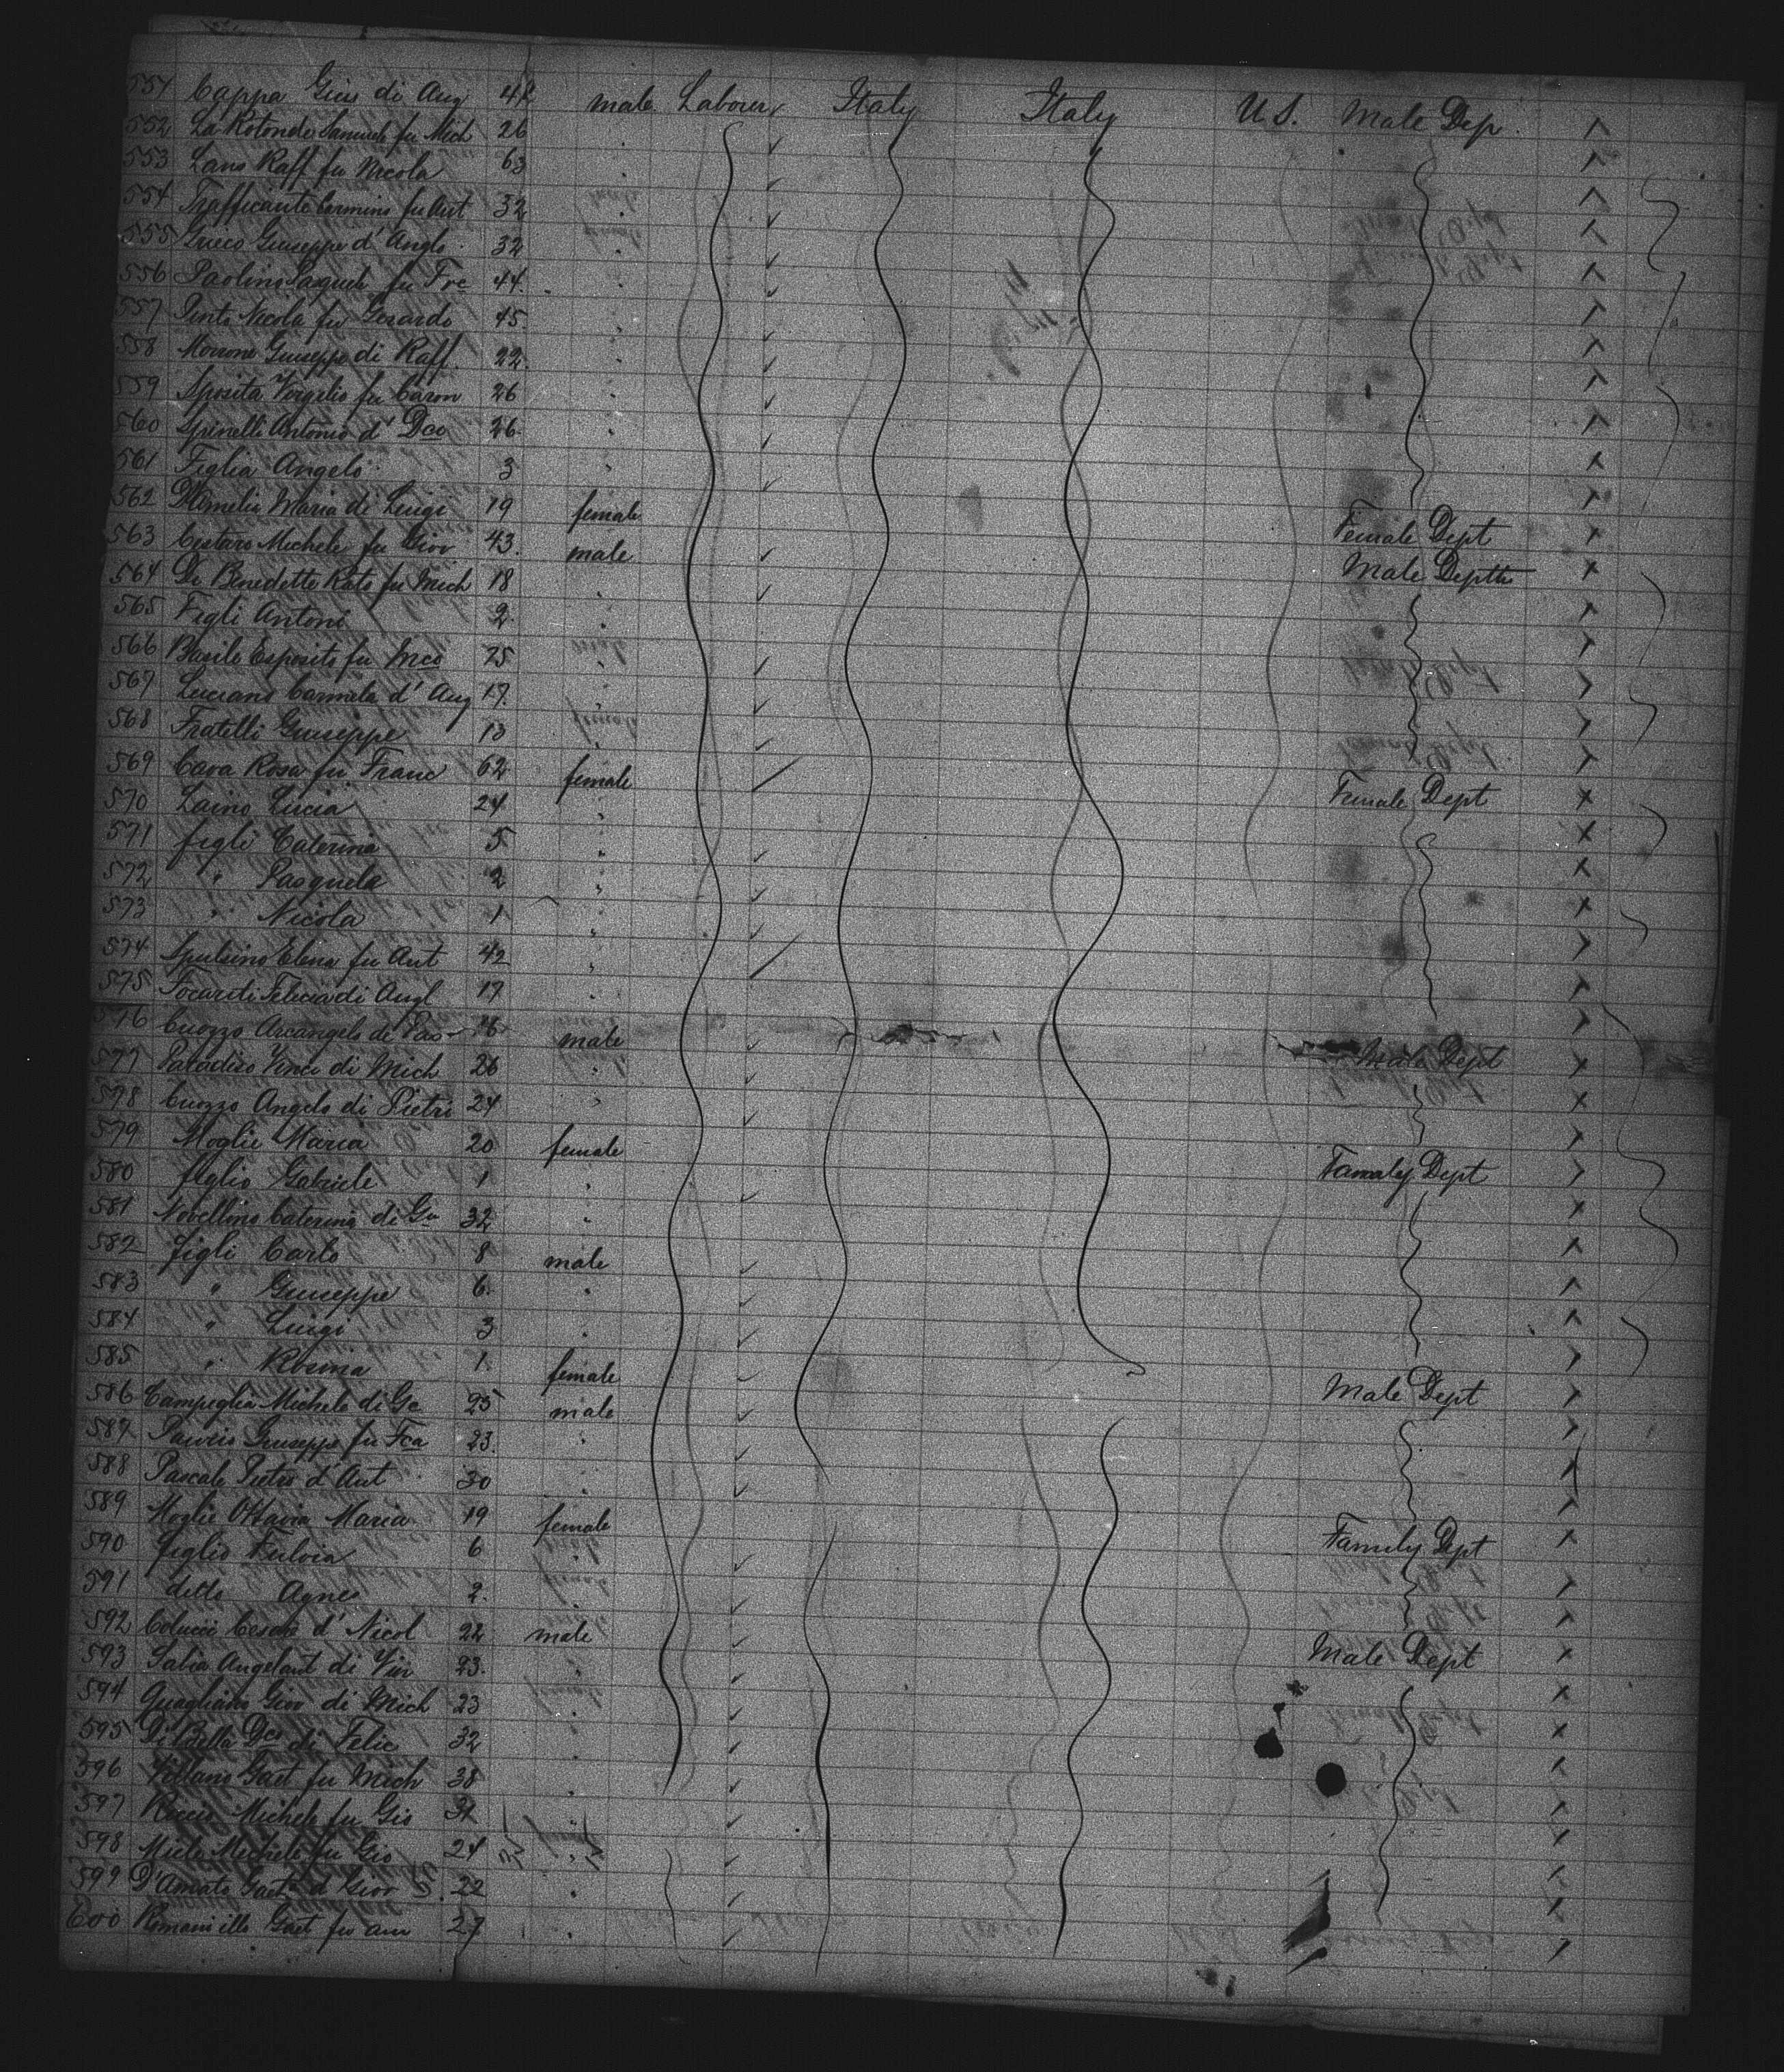 551 Cappa Gius di Ang 42 male Laborer Italy Italy U.S. Male Dep.
552 La Rotonda Samuele fu Mich 26 "
553 Lano Raff fu Nicola 63 "
554 Trafficante Carmine fu Ant 32 "
555 Grieco Giuseppe d' Anglo 32 "
556 Paolino Pasquale fu Frc 44 "
557 Pinto Nicola fu Gerardo 45 "
558 Morrone Giuseppe di Raff 22 "
559 Sposita Virgilio fu 26 "
560 Spinelli Antonio d' Dco 26 "
561 Figlia Angelo 3 "
562 D'Amelia Maria di Luigi 19 female Female Dept
563 Cestaro Michele fu Giov 43 male Male Deptt
564 De Benedetto Rato fu Mich 18 "
565 Figli Antoni 2 "
566 Basile Esposito fu Mco 25 "
567 Luciano Carmela d' Ang 17 "
568 Fratelli Giuseppe 13 "
569 Cava Rosa fu Franc 62 female Female Dept
570 Laino Lucia 24 "
571 figli Caterina 5 "
572 " Pasquela 2 "
573 " Nicola 1 "
574 Spulsino Elena fu Ant 42 "
575 Focardi Felicia di Angl 17 "
576 Cuozzo Arcangelo di Pas 16 male Male Dept
577 Paradiso Vince di Mich 26 "
578 Cuozzo Angelo di Pietri 24 "
579 Moglie Maria 20 female Famaly Dept
580 figlio Gabriele 1 "
581 Novellino Caterina di Gu 32 "
582 figli Carlo 8 male
583 " Giuseppe 6 "
584 " Luigi 3 "
585 " Rosina 1 female
586 Campiglia Michele di Ge 25 male Male Dept
587 Giuseppe fu Fca 23 "
588 Pascale Pietro d' Ant 30 "
589 Moglie Ottavia Maria 19 female Family Dept
590 figlio Fulvia 6 "
591 detto Agnes 2 "
592 Colucci Cesare d' Nicol 22 male Male Dept
593 Salia Angelant di 23 "
594 Quagliano Giov di Mich 23 "
595 Di Bella Dco di Felic 32 "
596 Villano Gaet fu Mich 38 "
597 Riccio Michele fu Gio 31 "
598 Miele Michele fu Gio 24 "
599 D'Amato Gaet d' Giov 22 "
600 Gaet fu 27 "